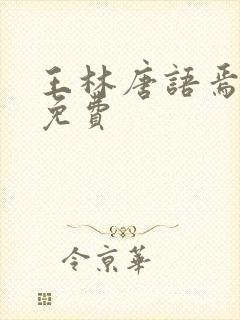 王林唐語焉
免費
令京華